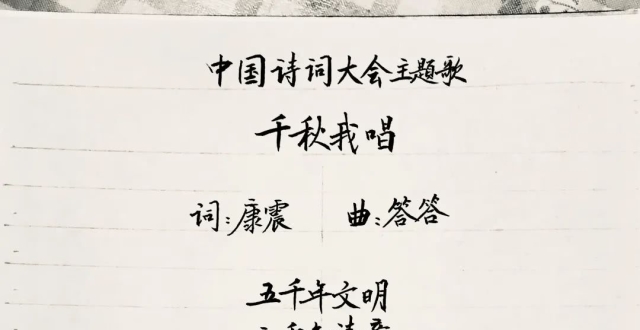 中国诗词大会主题歌
千秋我唱
词:康震 曲:答答
五千年文明